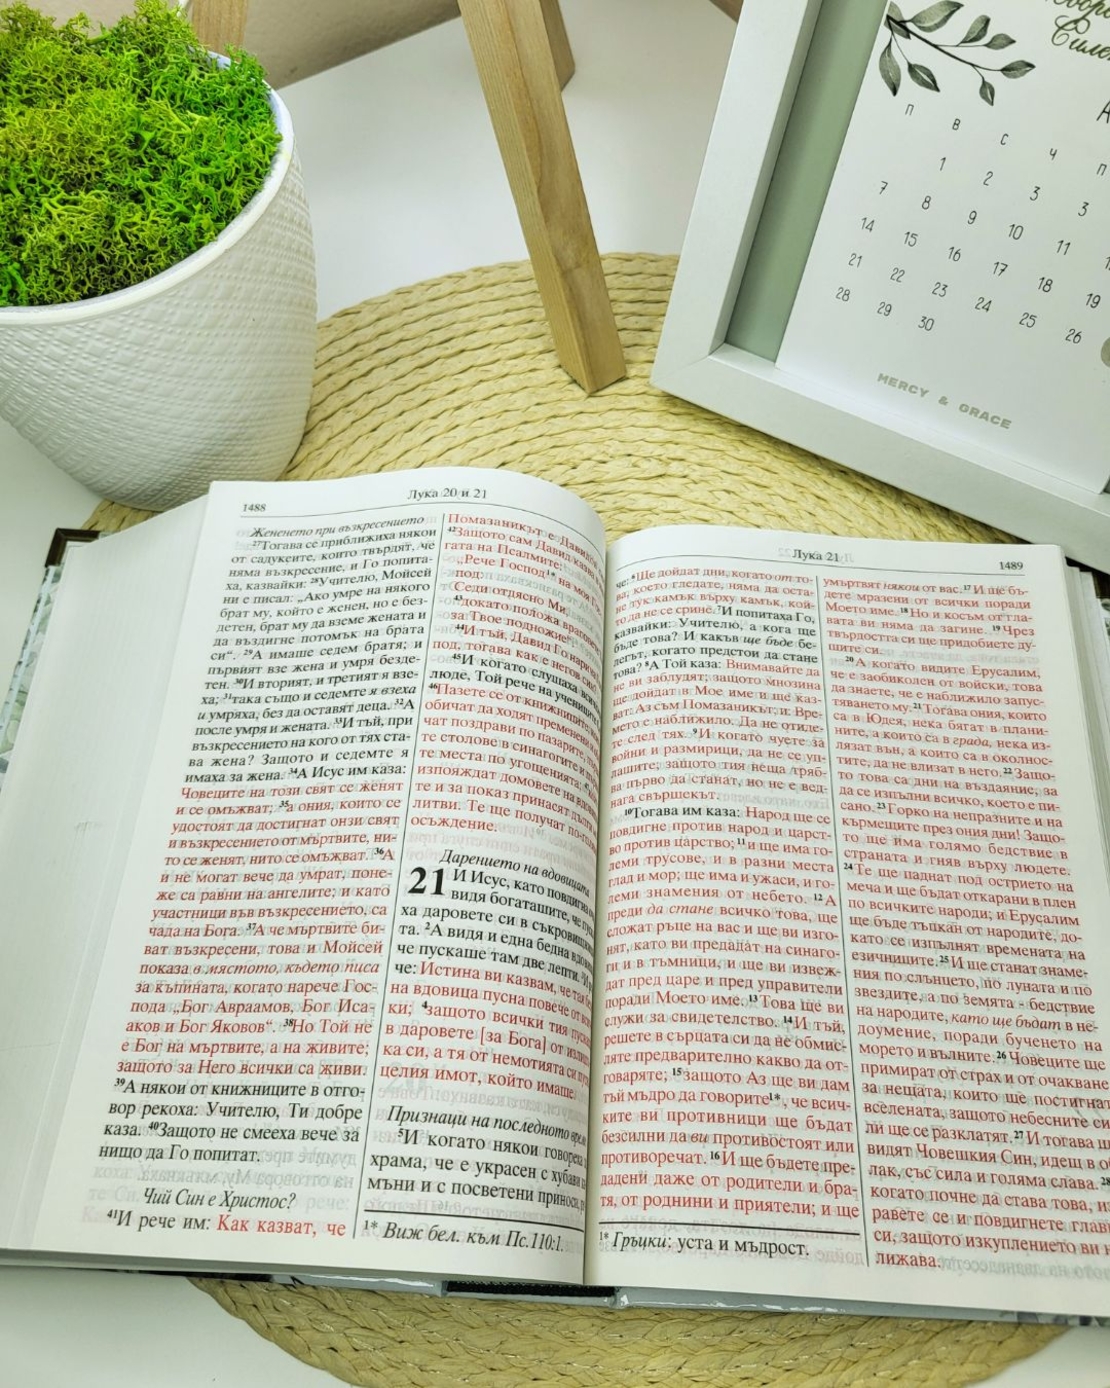 П В С Ч П
1 2 3 3
7 8 9 10 11
14 15 16 17 18 19
21 22 23 24 25 26
28 29 30
MERCY & GRACE
1488
Лука 20 и 21
Жененето при възкресението
27Тогава се приближиха някои
от садукеите, които твърдят, че
няма възкресение, и Го попита-
ха, казвайки: 28Учителю, Мойсей
ни е писал: „Ако умре на някого
брат му, който е женен, но е без-
детен, брат му да вземе жената и
да въздигне потомък на брата
си“. 29А имаше седем братя; и
първият взе жена и умря безде-
тен. 30И вторият, и третият я взе-
ха; 31така също и седемте я взеха
и умряха, без да оставят деца. 32А
после умря и жената. 33И тъй, при
възкресението на кого от тях ста-
ва жена? Защото и седемте я
имаха за жена. 34А Исус им каза:
Човеците на този свят се женят
и се омъжват; 35а ония, които се
удостоят да достигнат онзи свят
и възкресението от мъртвите, ни-
то се женят, нито се омъжват. 36А
и не могат вече да умрат, поне-
же са равни на ангелите; и като
участници във възкресението, са
чада на Бога. 37А че мъртвите би-
ват възкресени, това и Мойсей
показа в мястото, където писа
за къпината, когато нарече Гос-
пода „Бог Авраамов, Бог Иса-
аков и Бог Яковов“. 38Но Той не
е Бог на мъртвите, а на живите;
защото за Него всички са живи.
39А някои от книжниците в отго-
вор рекоха: Учителю, Ти добре
каза. 40Защото не смееха вече за
нищо да Го попитат.
Чий Син е Христос?
41И рече им: Как казват, че
Помазаникът е Давидов
42Защото сам Давид казва в
гата на Псалмите:
„Рече Господ1* на моя
под:
Седи отдясно Ми,
43докато положа враговете
за Твое подножие“.
44И тъй, Давид Го нарича
под, тогава как е негов син?
45И когато слушаха всички
люде, Той рече на учениците
46Пазете се от книжниците,
обичат да ходят пременени
чат поздрави по пазарите,
те столове в синагогите и
те места по угощенията;
изпояждат домовете на вдов
те и за показ принасят дълги
литви. Те ще получат по-голямо
осъждение.
Дарението на вдовицата
21 И Исус, като повдигна
видя богаташите, че пус
ха даровете си в съкровищни
та. 2А видя и една бедна вдовица
че пускаше там две лепти.
че: Истина ви казвам, че тая бед
на вдовица пусна повече от всич
ки; 4защото всички тия пуснаха
в даровете [за Бога] от излиш
ка си, а тя от немотията си пусна
целия имот, който имаше.
Признаци на последното време
5И когато някои говореха
храма, че е украсен с хубави
мъни и с посветени приноси,
1* Виж бел. към Пс.110:1.
Лука 21
1489
че: 6Ще дойдат дни, когато от то-
ва, което гледате, няма да оста-
не тук камък върху камък, кой-
то да не се срине. 7И попитаха Го,
казвайки: Учителю, а кога ще
бъде това? И какъв ще бъде бе-
легът, когато предстои да стане
това? 8А Той каза: Внимавайте да
не ви заблудят; защото мнозина
ще дойдат в Мое име и ще каз-
ват: Аз съм Помазаникът; и: Вре-
мето е наближило. Да не отиде-
те след тях. 9И когато чуете за
войни и размирици, да не се уп-
лашите; защото тия неща тряб-
ва първо да станат, но не е вед-
нага свършекът.
10Тогава им каза: Народ ще се
повдигне против народ и царст-
во против царство; 11и ще има го-
леми трусове, и в разни места
глад и мор; ще има и ужаси, и го-
леми знамения от небето. 12А
преди да стане всичко това, ще
сложат ръце на вас и ще ви изго-
нят, като ви предадат на синаго-
ги и в тъмници, и ще ви извеж-
дат пред царе и пред управители
поради Моето име. 13Това ще ви
служи за свидетелство. 14И тъй,
решете в сърцата си да не обмис-
ляте предварително какво да от-
говаряте; 15защото Аз ще ви дам
тъй мъдро да говорите1*, че всич-
ките ви противници ще бъдат
безсилни да ви противостоят или
противоречат. 16И ще бъдете пре-
дадени даже от родители и бра-
тя, от роднини и приятели; и ще
1* Гръцки: уста и мъдрост.
умъртвят някои от вас. 17И ще бъ-
дете мразени от всички поради
Моето име. 18Но и косъм от гла-
вата ви няма да загине. 19Чрез
твърдостта си ще придобиете ду-
шите си.
20А когато видите Ерусалим,
че е заобиколен от войски, това
да знаете, че е наближило запус-
тяването му. 21Тогава ония, които
са в Юдея, нека бягат в плани-
ните, а които са в града, нека из-
лязат вън, а които са в околнос-
тите, да не влизат в него. 22Защо-
то това са дни на въздаяние, за
да се изпълни всичко, което е пи-
сано. 23Горко на непразните и на
кърмещите през ония дни! Защо-
то ще има голямо бедствие в
страната и гняв върху людете.
24Те ще паднат под острието на
меча и ще бъдат откарани в плен
по всичките народи; и Ерусалим
ще бъде тъпкан от народите, до-
като се изпълнят времената на
езичниците. 25И ще станат знаме-
ния по слънцето, по луната и по
звездите, а по земята - бедствие
на народите, като ще бъдат в не-
доумение, поради бученето на
морето и вълните. 26Човеците ще
примират от страх и от очакване
за нещата, които ще постигнат
вселената, защото небесните си
ли ще се разклатят. 27И тогава щ
видят Човешкия Син, идещ в об
лак, със сила и голяма слава. 28
когато почне да става това, из
равете се и повдигнете глави
си, защото изкуплението ви н
лижава.